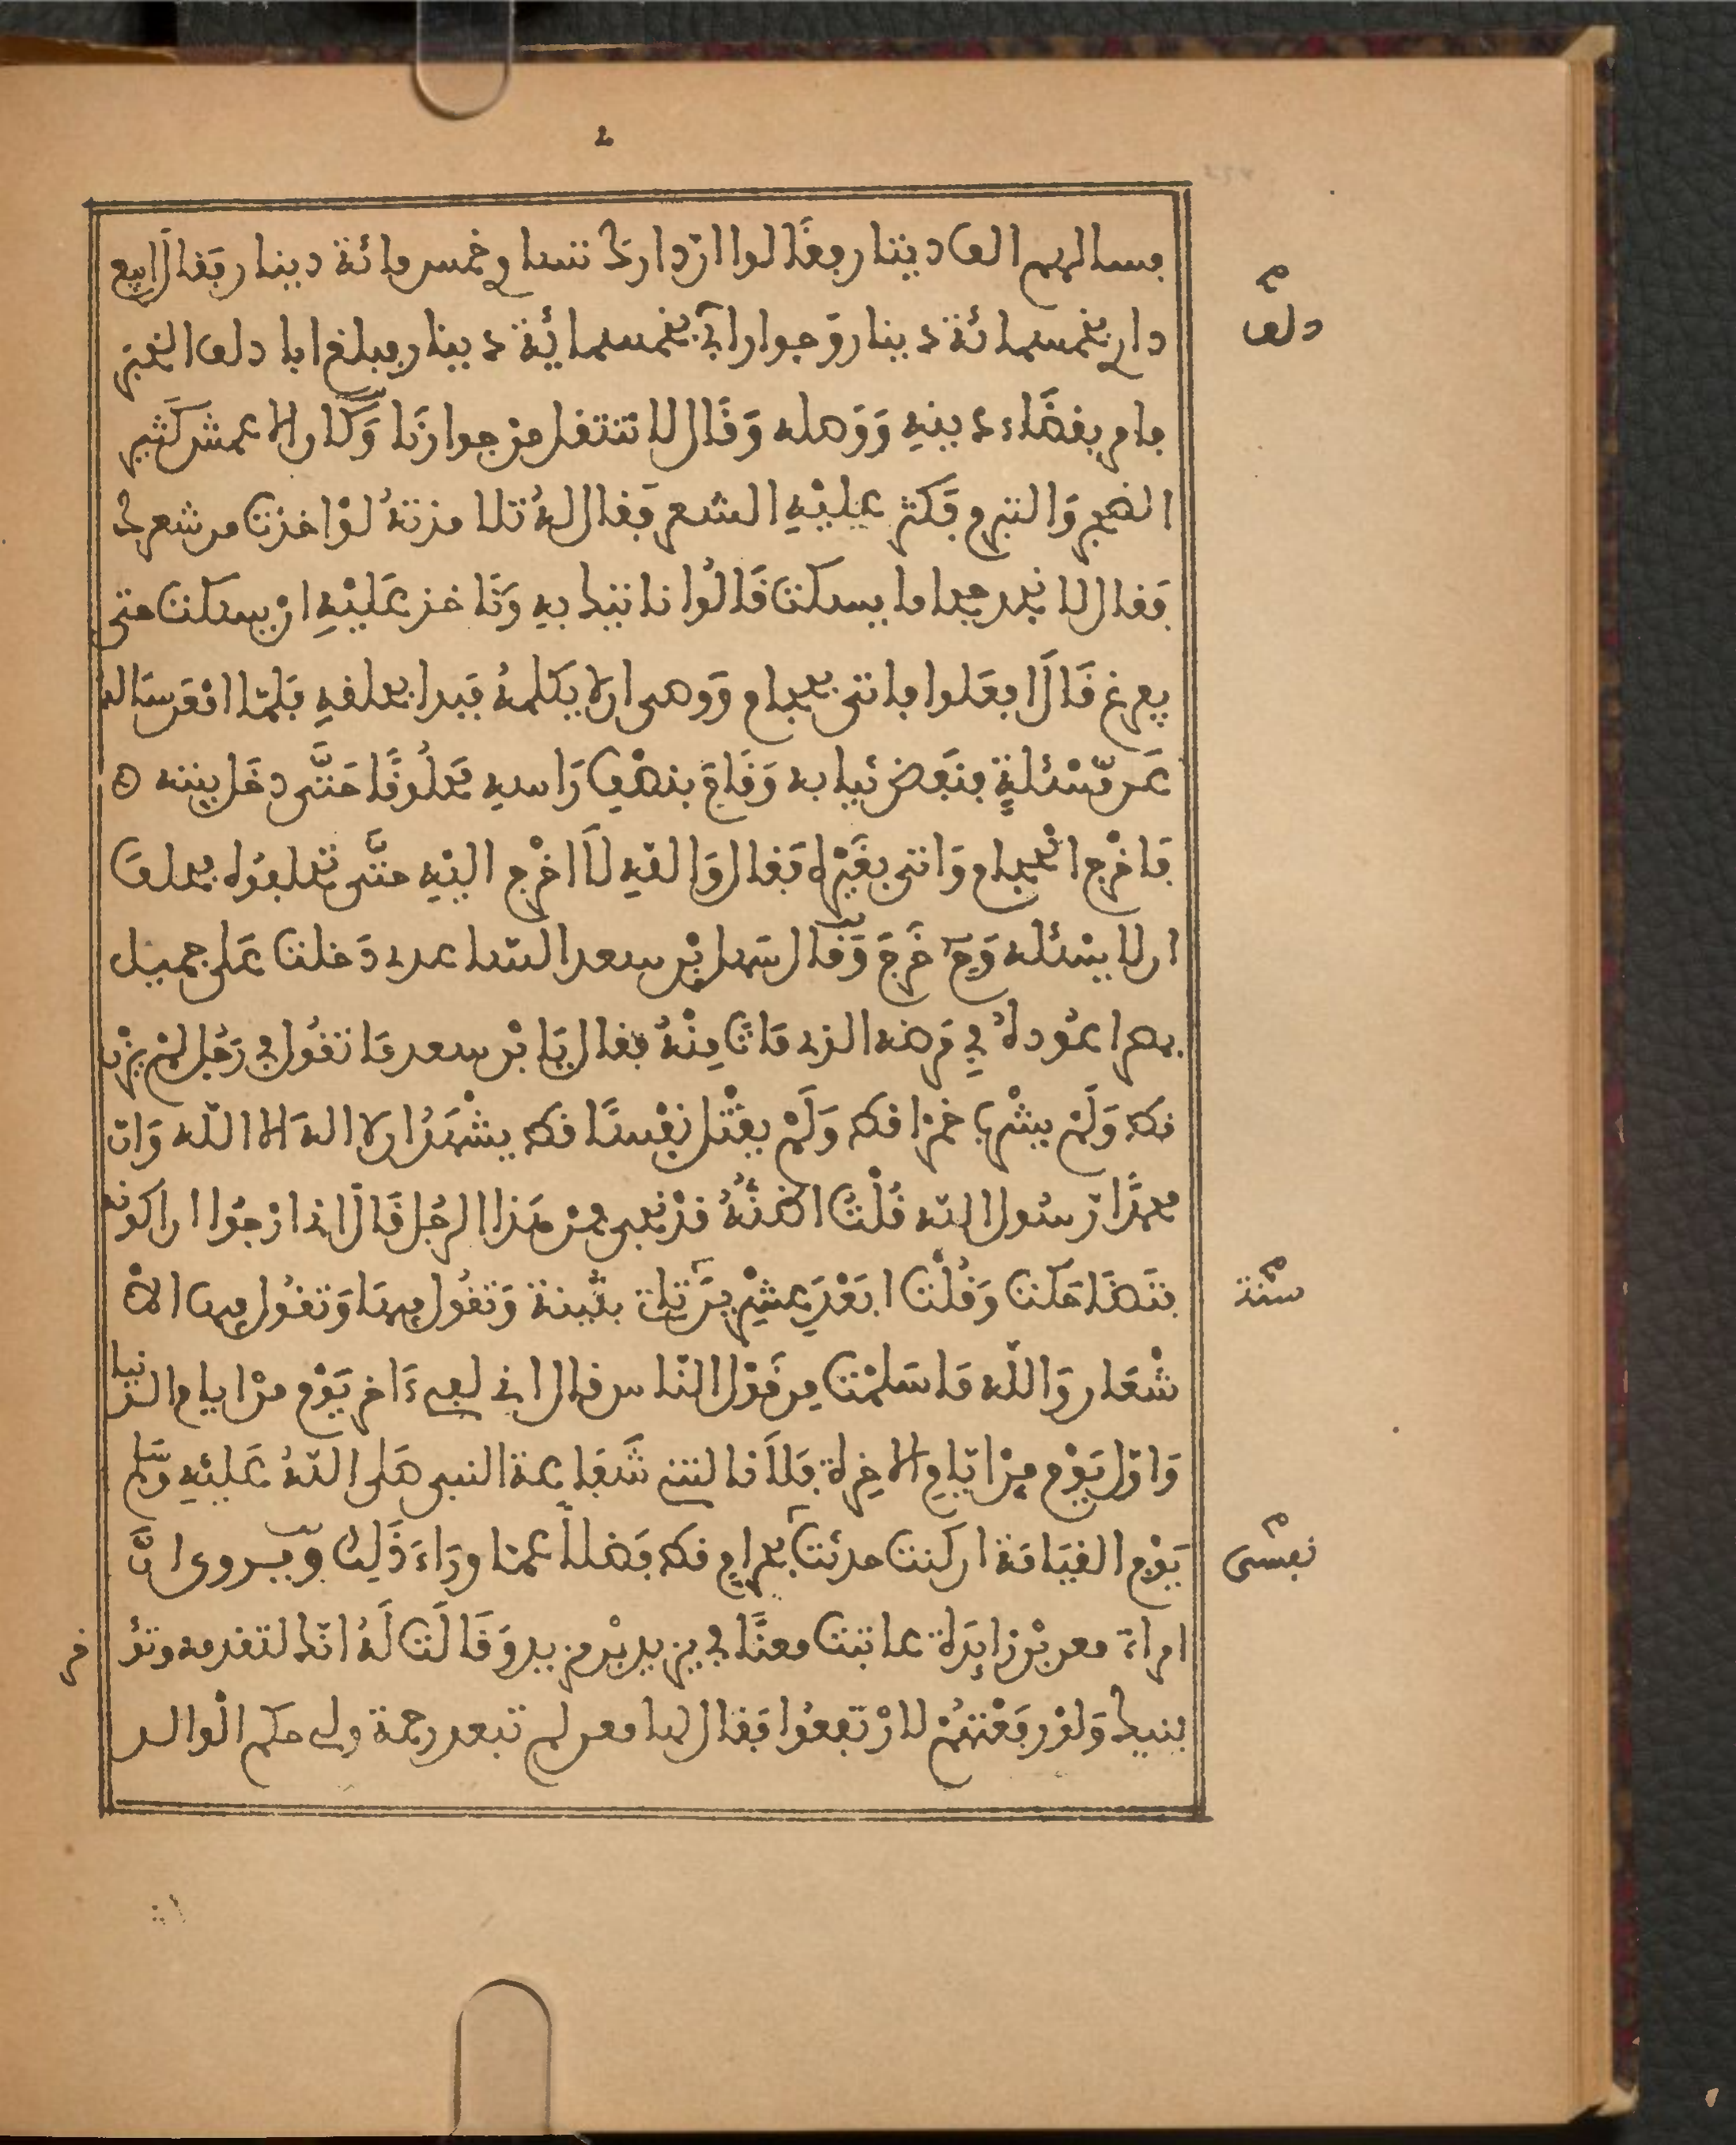 2
فسالهم الف دينار فقالوا ان دارك تسا وخمس مائة دينار فقال ابيع
دلف
داري بخمسمائة دينار وجواراي بخمسمائة دينار فبلغ ابا دلف الخبر
فامر بقضاء دينه ووصله وقال لا تنتقل من جوارنا وكان الاعمش كثير
الضجر والتبرم فكثر عليه الشعر فقال له تلامذته لو اخذت من شعرك
فقال لا نجد حجاما يسكت قالوا ناتيك به وناخذ عليه ان يسكت حتى
يفرغ قال افعلوا فاتى بحجام ووصى ان لا يكلمه فبدا بحلقه فلما امعن ساله
عن مسئلة فنفض ثيابه وقام بنصف راسه محلوقا حتى دخل بيته
فاخرج الحجام واتى بغيره فقال والله لا اخرج اليه حتى تحلفوه فحلف
ان لا يسئله وح خرج وقال سهل بن سعد الساعدي دخلت على جميل
بمصر اعوده في مرضه الذي مات منه فقال يا بن سعد ما تقول في رجل لم يزن
قط ولم يشرب خمرا قط ولم يقتل نفسا قط يشهد ان لا اله الا الله وان
محمدا رسول الله قلت اظنه قد نجى فمن هذا الرجل قال اني ارجوا ان اكونه
سنة
فتضاحكت وقلت ابعد عشرين تات بثينة وتقول فيها وتقول فيها الا
شعار والله ما سلمت من قول الناس قال اني لفي ءاخر يوم من ايام الدنيا
واول يوم من ايام الاخرة فلا نالتني شفاعة النبي صلى الله عليه وسلم
نفسى
يوم القيامة ان كنت حدثت بحرام قط فضلا عما وراء ذلك ويروى ان
امراة معن بن زايدة عاتبت معنا في يزيد بن مزيد وقالت له انك لتقدمه وتؤخر
بنيك ولو رفعتهم لارتفعوا فقال لها معن لم تبعد رحمة ولي حكم الوالد